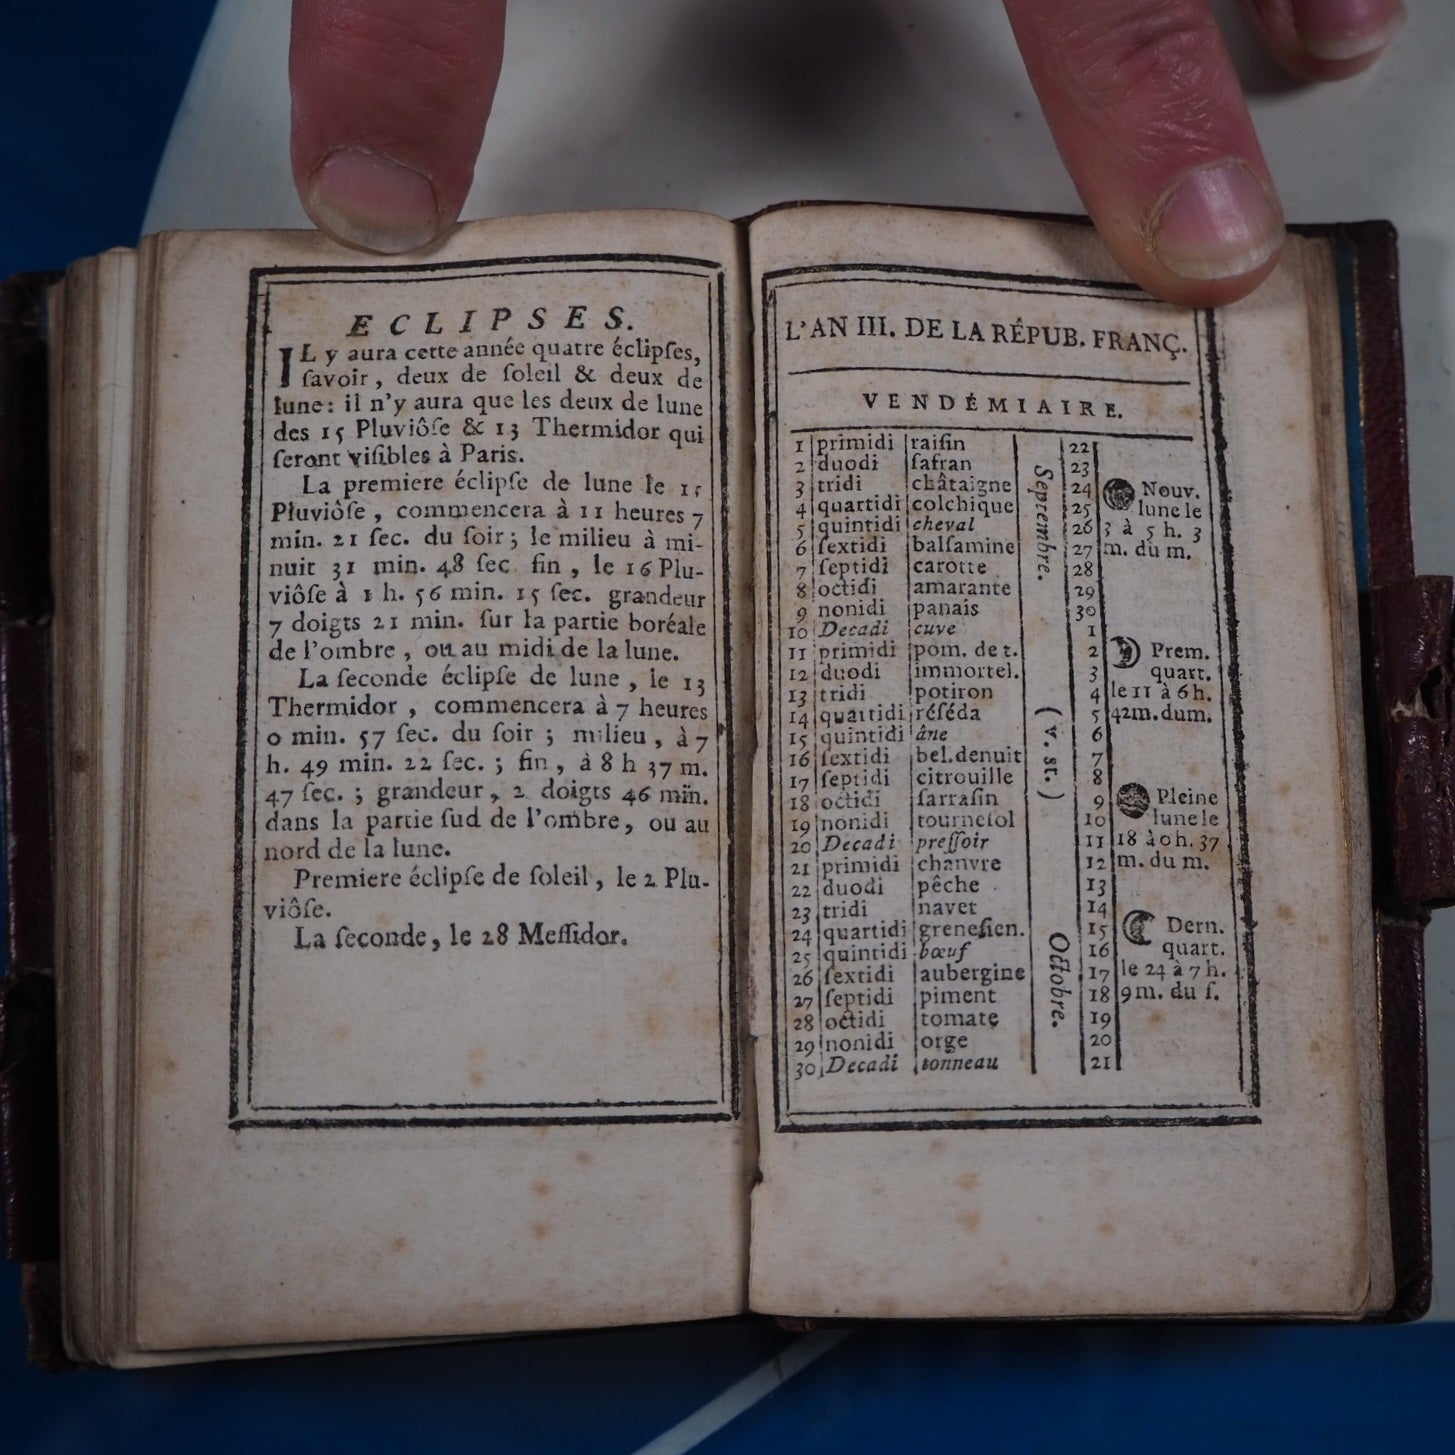 ECLIPSES.
IL y aura cette année quatre éclipſes,
ſavoir, deux de ſoleil & deux de
lune: il n'y aura que les deux de lune
des 15 Pluviôſe & 13 Thermidor qui
ſeront viſibles à Paris.
La premiere éclipſe de lune le 15
Pluviôſe, commencera à 11 heures 7
min. 21 ſec. du ſoir; le milieu à mi-
nuit 31 min. 48 ſec fin, le 16 Plu-
viôſe à 1 h. 56 min. 15 ſec. grandeur
7 doigts 21 min. ſur la partie boréale
de l'ombre, ou au midi de la lune.
La ſeconde éclipſe de lune, le 13
Thermidor, commencera à 7 heures
0 min. 57 ſec. du ſoir; milieu, à 7
h. 49 min. 22 ſec.; fin, à 8 h 37 m.
47 ſec.; grandeur, 2 doigts 46 min.
dans la partie ſud de l'ombre, ou au
nord de la lune.
Premiere éclipſe de ſoleil, le 2 Plu-
viôſe.
La ſeconde, le 28 Meſſidor.
L'AN III. DE LA RÉPUB. FRANÇ.
VENDÉMIAIRE.
1 primidi raiſin 22
2 duodi ſafran 23
3 tridi châtaigne 24 Nouv.
4 quartidi colchique 25 lune le
5 quintidi cheval 26 3 à 5 h. 3
6 ſextidi balſamine 27 m. du m.
7 ſeptidi carotte 28
8 octidi amarante 29
9 nonidi panais 30
10 Decadi cuve 1
11 primidi pom. de t. 2 Prem.
12 duodi immortel. 3 quart.
13 tridi potiron 4 le 11 à 6h.
14 quartidi réſéda 5 42m. du m.
15 quintidi âne 6
16 ſextidi bel. de nuit 7
17 ſeptidi citrouille 8
18 octidi ſarraſin 9 Pleine
19 nonidi tourneſol 10 lune le
20 Decadi preſſoir 11 18 à 0h. 37
21 primidi chanvre 12 m. du m.
22 duodi pêche 13
23 tridi navet 14
24 quartidi greneſien. 15 Dern.
25 quintidi bœuf 16 quart.
26 ſextidi aubergine 17 le 24 à 7 h.
27 ſeptidi piment 18 9 m. du ſ.
28 octidi tomate 19
29 nonidi orge 20
30 Decadi tonneau 21
Septembre.
(v. st.)
Octobre.